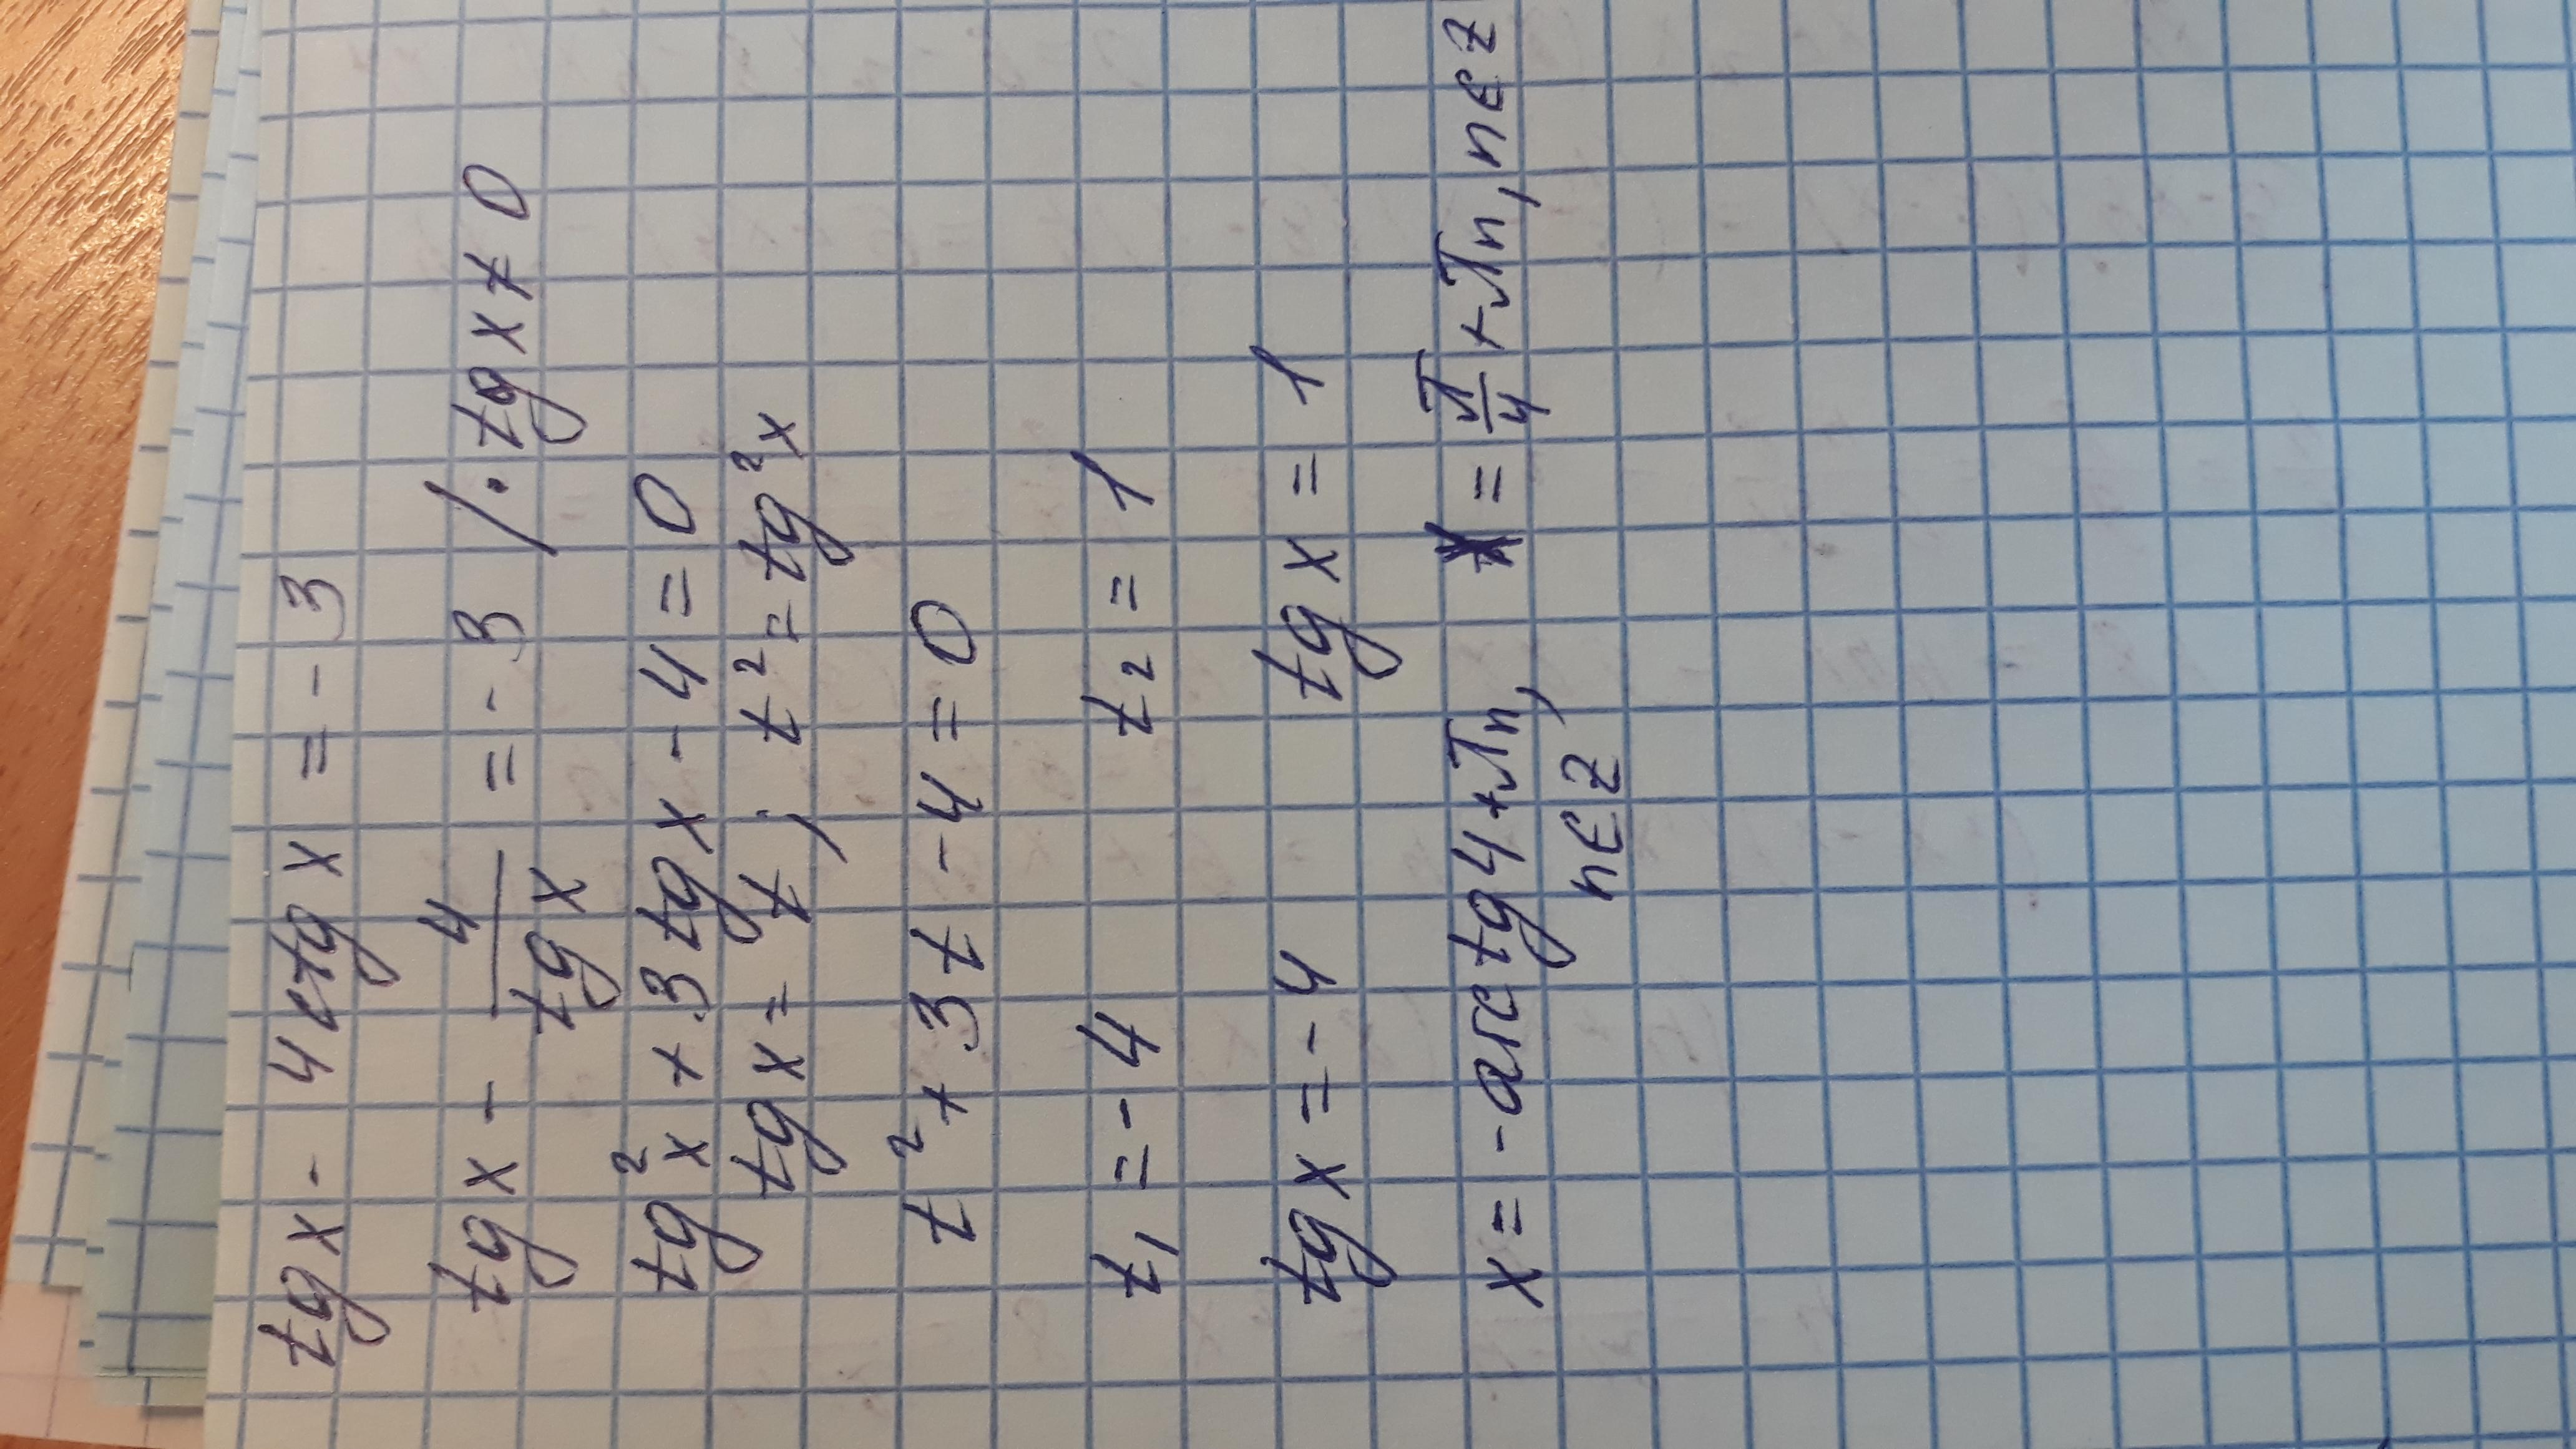 tg x - 4 ctg x = - 3
tg x - 4/tg x = - 3 / · tg x ≠ 0
tg²x + 3 tg x - 4 = 0
tg x = t ; t² = tg²x
t² + 3t - 4 = 0
t₁ = - 4 t₂ = 1
tg x = - 4 tg x = 1
x = - arctg 4 + πn, x = π/4 + πn, n ∈ Z
n ∈ Z